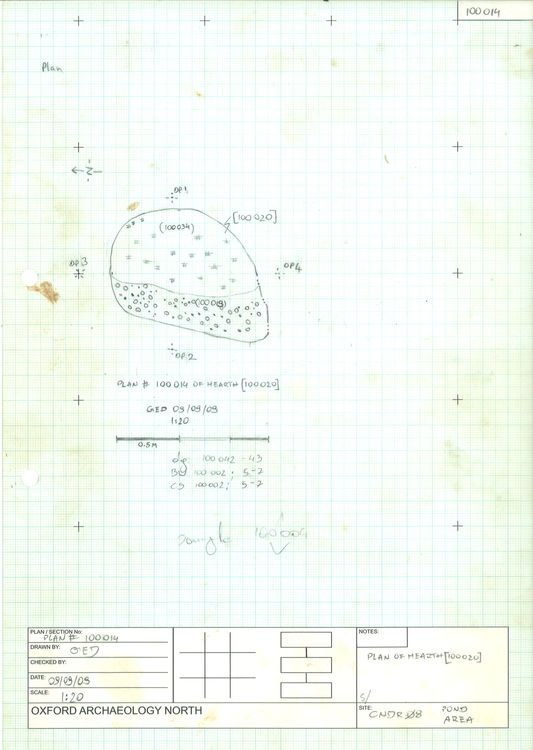 100014
Plan
N
DP1
(100034)
[100020]
DP3
DP4
(100019)
DP.2
PLAN # 100014 OF HEARTH [100020]
GED 09/09/09
1:20
0.5M
100042-43
100002; 5-2
CS 100002; 5-2
Sample
PLAN / SECTION No:
PLAN # 100014
DRAWN BY: GED
CHECKED BY:
DATE: 09/09/09
SCALE: 1:20
OXFORD ARCHAEOLOGY NORTH
NOTES:
PLAN OF HEARTH [100020]
S/
SITE: CNDR Ø8 POND
AREA